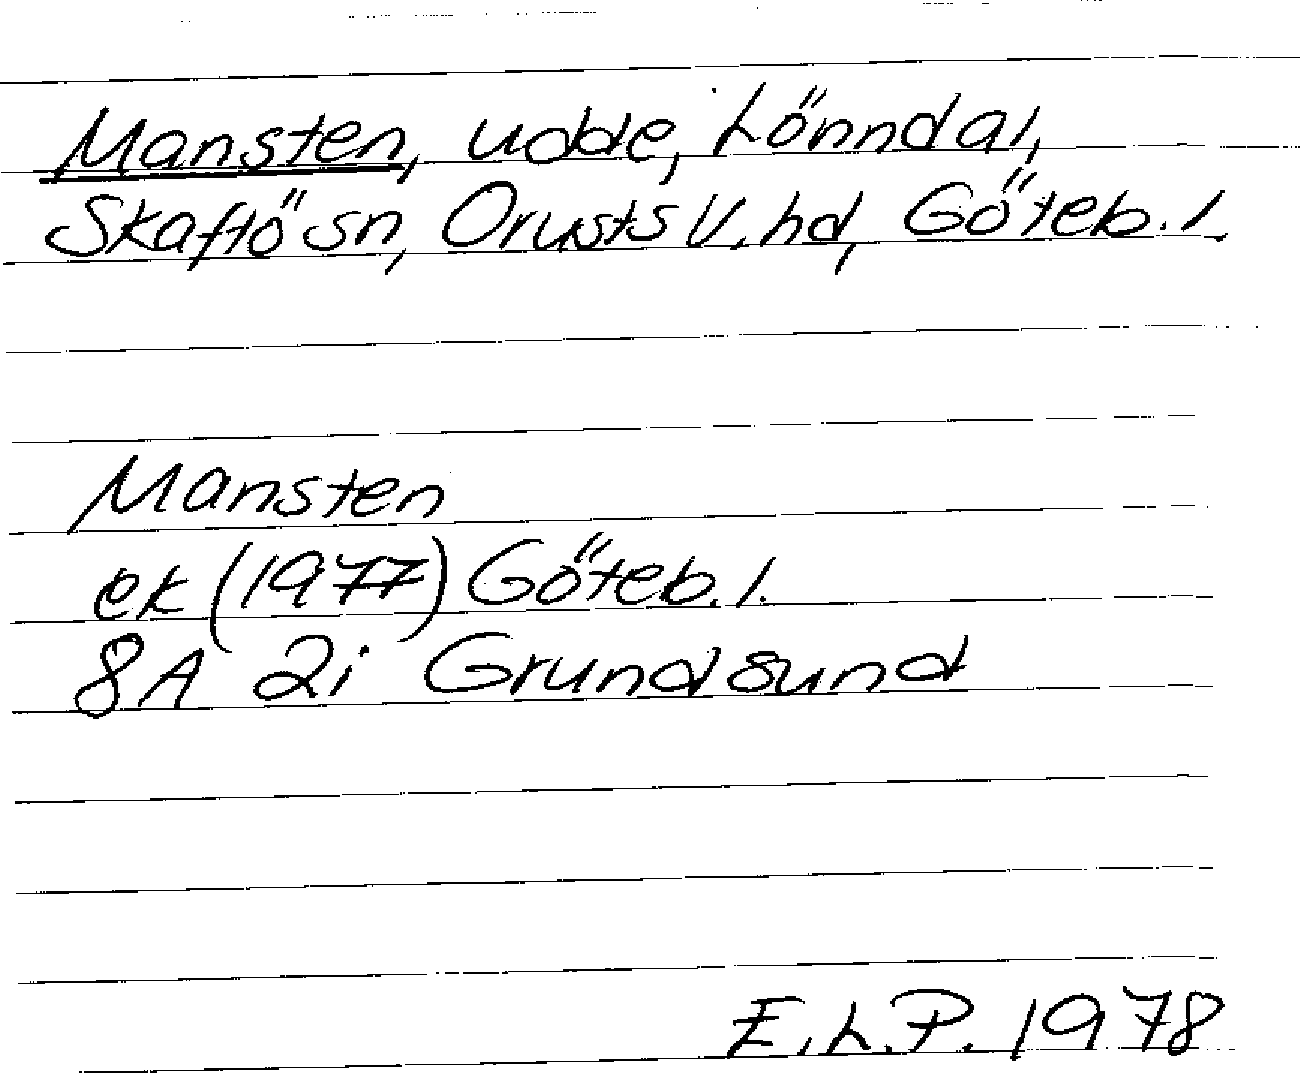 Mansten, udde, Lönndal,
Skaftö sn, Orusts V. hd, Göteb. l.
Mansten
ek (1977) Göteb. l.
8A 2i Grundsund
E.L.P. 1978